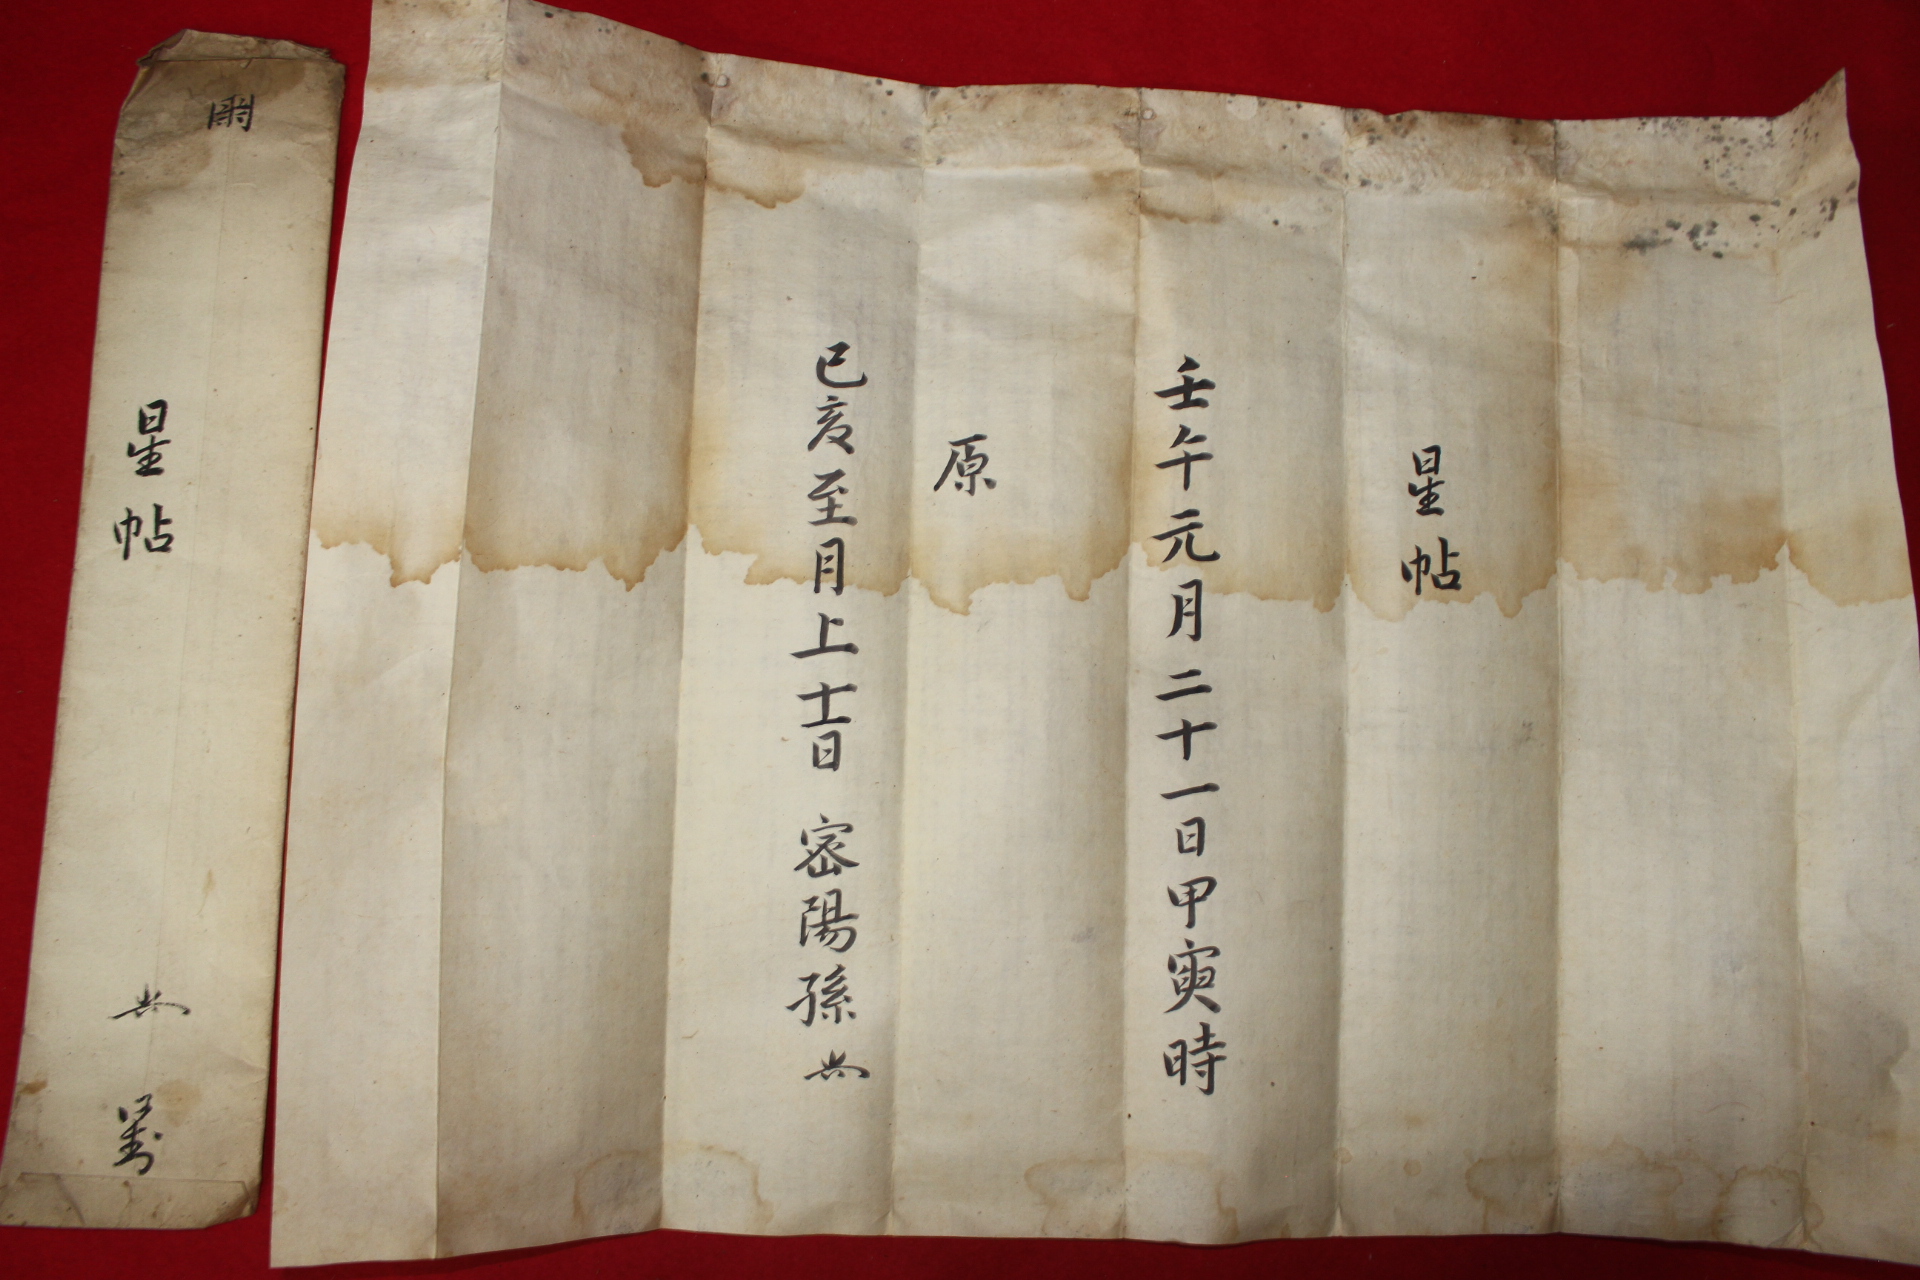 星帖
壬午元月二十一日甲寅時
原
已亥至月上士日 密陽孫
星帖